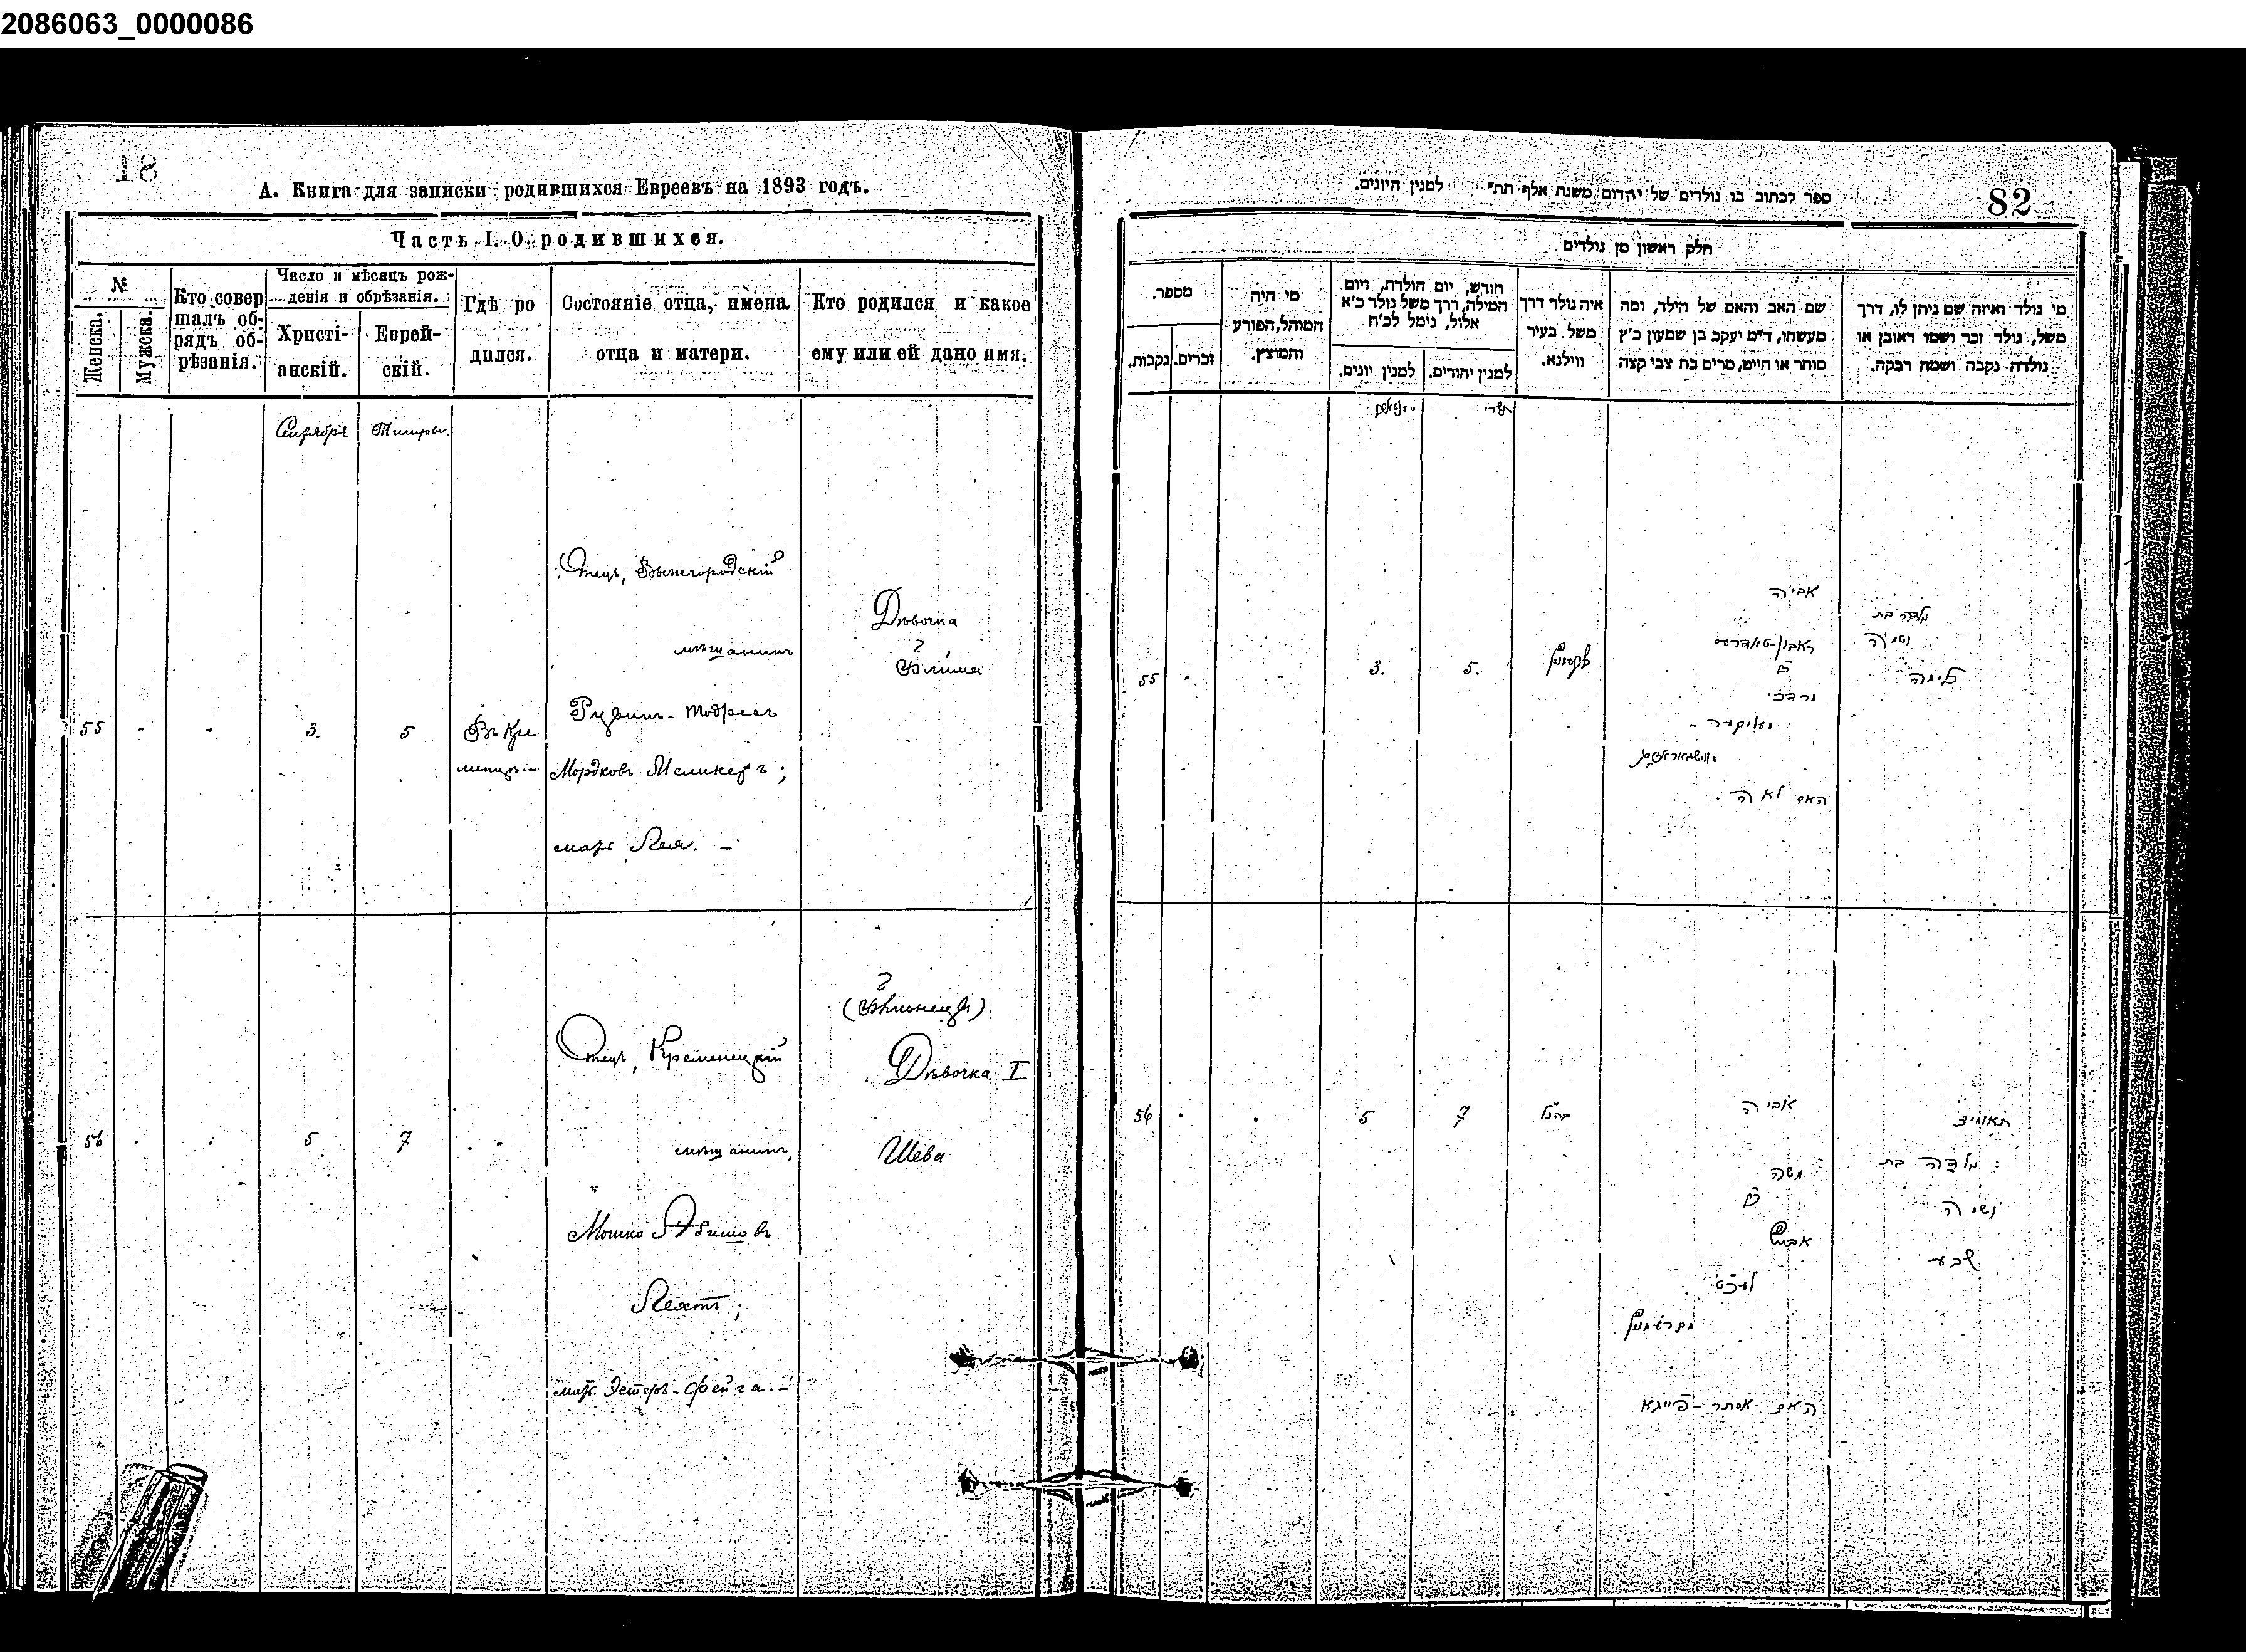 2086063_0000086
81
А. Книга для записки родившихся Евреевъ на 1893 годъ.
Часть I. О родившихся.
№
Женска.
Мужска.
Кто совер
шалъ об-
рядъ об-
рѣзанія.
Число и мѣсяцъ рож-
денія и обрѣзанія.
Христі-
анскій.
Еврей-
скій.
Гдѣ ро
дился.
Состояніе отца, имена
отца и матери.
Кто родился и какое
ему или ей дано имя.
Сентября
55
3.
5
Въ Кре
менцѣ
Отецъ,
мѣщанинъ
Рувинъ-Тодресъ
Мордковъ Меликеръ;
мать Лея. –
Дѣвочка
56
5
7
Отецъ, Кременецкій
мѣщанинъ,
Мошко Абишовъ
Лехтъ;
мать Эстеръ-Фейга. –
(Близнецы)
Дѣвочка I
Шева
82
ספר לכתוב בו נולדים של יהדום משנת אלף תת״ למנין היונים.
חלק ראשון מן נולדים
מי נולד ואיזה שם ניתן לו, דרך
משל, נולד זכר ושמו ראובן או
נולדה נקבה ושמה רבקה.
שם האב והאם של הילד, ומה
מעשהו, ד״מ יעקב בן שמעון כ״ץ
סוחר או חייט, מרים בת צבי קצה
איה נולד דרך
משל בעיר
ווילנא.
חודש, יום הולדת, ויום
המילה, דרך משל נולד כ״א
אלול, נימל לכ״ח
למנין יהודים.
למנין יונים.
מי היה
המוהל, הפורע
והמוצץ.
מספר.
זכרים.
נקבות.
תשרי
55
3.
5.
אביה
מרדכי
האם לאה
56
5
7
אביה
משה
בן
אביש
לעכט
האם אסתר-פייגא
תאומים
נולדה בת
ושמה
שבע